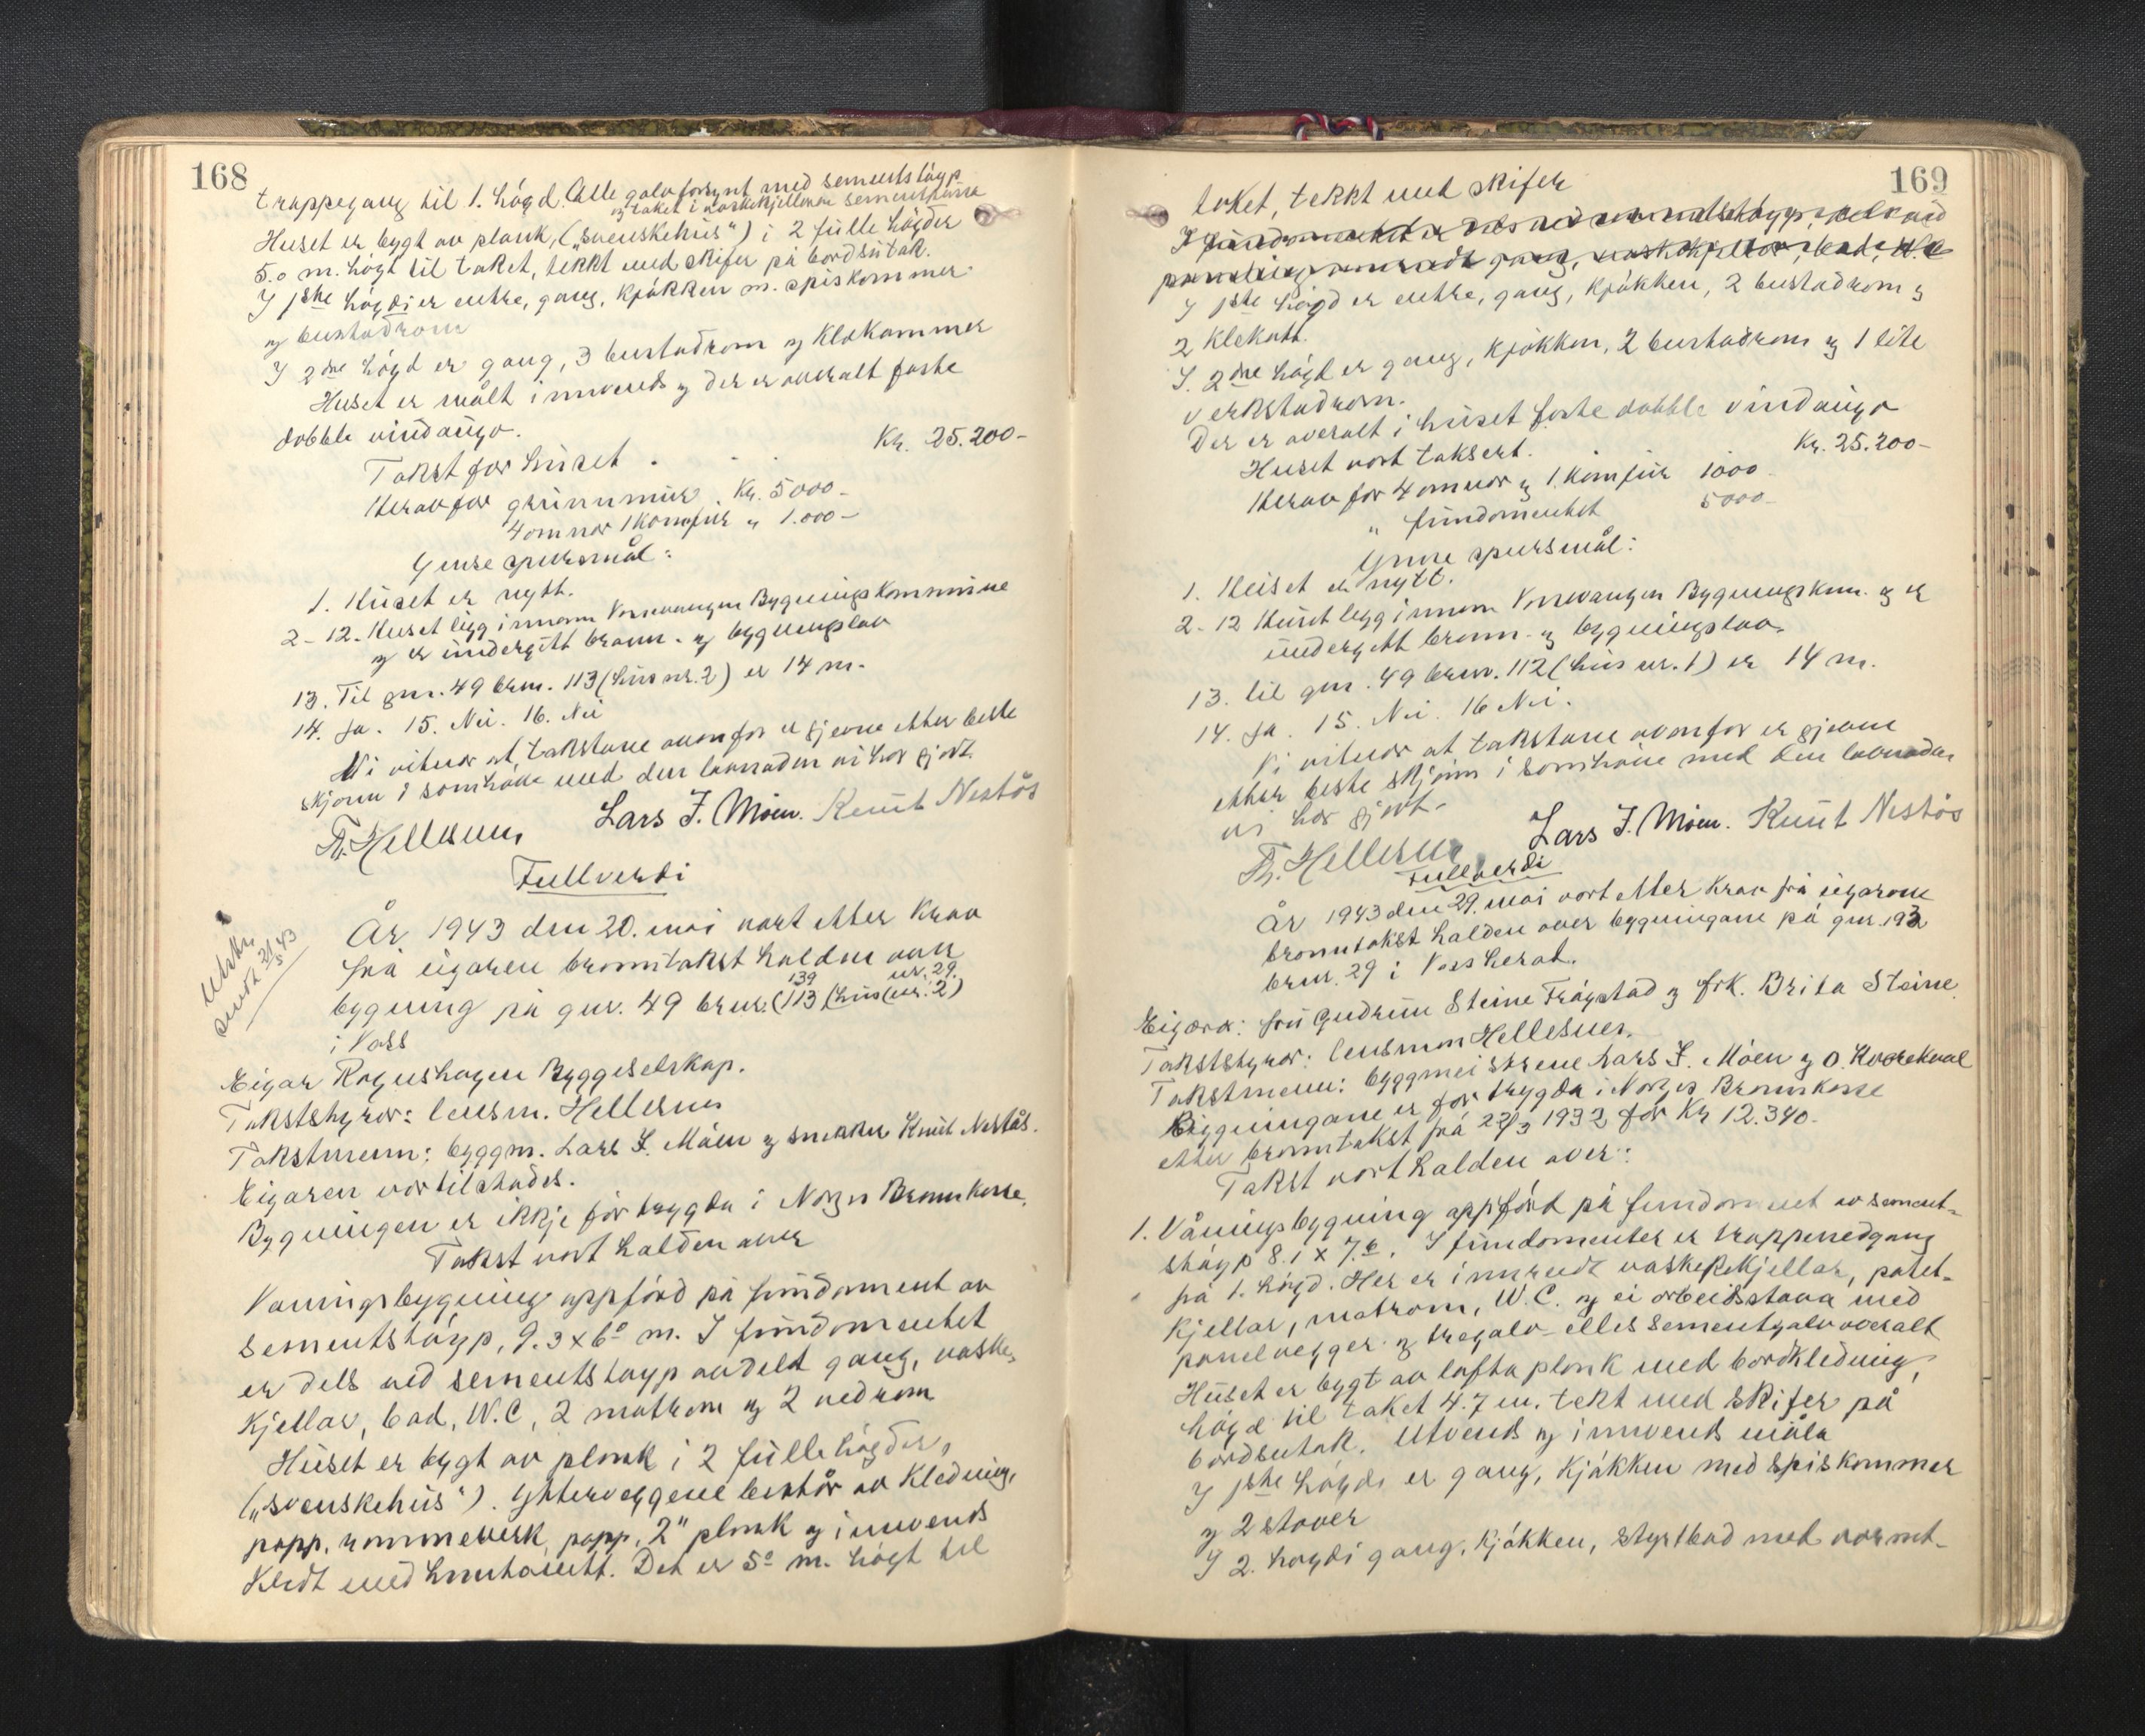 168
trappegang til 1. högd. Alle golv forsynt med sementstöyp
og taket i vaskekjellaren sementpussa
Huset er bygt av plank, („svenskehus") i 2 fulle högder
5.0 m. högt til taket, tekkt med skifer på bordsutak.
I 1ste högdi er entre, gang, kjökken m. spiskammer
og bustadrom
I 2dre högd er gang, 3 bustadrom og klekammer
Huset er målt innvends og der er overalt faste
dobble vindaugo.
Takst for huset . Kr. 25.200-
Herav for grunnmur . Kr. 5000-
4 omnar 1 komfur " 1.000-
Ymse spursmål:
1. Huset er nytt.
2-12. Huset ligg innom Vossevangen Bygningskommune
og er undergitt brann- og bygningslov
13. Til gnr. 49 brnr. 113 (hus nr. 2) er 14 m.
14. Ja. 15. Nei. 16. Nei
Vi vitnar at takstane ovanfor er gjevne etter beste
skjønn i samhöve med den lovnaden vi har gjort.
Th. Hellesnes Lars J. Möen. Knut Nestås
Fullverdi
Utskr.
sendt 21/5 43
År 1943 den 20. mai vart etter krav
frå eigaren branntakst halden over
139 nr. 29.
bygning på gnr. 49 brnr. (113 (hus nr. 2)
i Voss
Eigar Rognshagen Byggeselskap.
Takststyrar: lensm. Hellesnes
Takstmenn: byggm. Lars J. Möen og snikkar Knut Nestås.
Eigaren var tilstades.
Bygningen er ikkje för trygda i Norges Brannkasse.
Takst vart halden over
Våningsbygning uppförd på fundament av
sementstöyp, 9.3 x 6.0 m. I fundamentet
er dels ved sementstöyp avdelt gang, vaske-
kjellar, bad, W.C, 2 matrom og 2 vedrom
Huset er bygt av plank i 2 fulle högder,
(„svenskehus"). Ytterveggene består av kledning,
papp, rammeverk, papp, 2" plank og innvends
kledt med huntonitt. Det er 5.0 m. högt til
169
taket, tekkt med skifer
I fundamentet er dels ved sementstöyp, dels ved
I 1ste högd er entre, gang, kjökken, 2 bustadrom og
2 klekott.
I. 2dre högd er gang, kjökken, 2 bustadrom og 1 lite
verkstadrom.
Der er overalt i huset faste dobble vindaugo
Huset vart taksert. Kr. 25.200-
Herav for 4 omnar og 1 komfur 1000
" fundamentet 5000-
Ymse spursmål:
1. Huset er nytt.
2-12 Huset ligg innom Vossevangen Bygningskom. og er
undergitt brann- og bygningslov.
13. til gnr. 49 brnr. 112 (hus nr. 1) er 14 m.
14. Ja. 15. Nei. 16 Nei.
Vi vitnar at takstane ovanfor er gjevne
etter beste skjönn i samhöve med den lovnaden
vi har gjort-
Th. Hellesnes Lars J. Möen. Knut Nestås
Fullverdi
År 1943 den 29. mai vart etter krav frå eigarane
branntakst halden over bygningane på gnr. 193
brnr. 29 i Voss herad.
Eigarar: fru Gudrun Steine Trågstad og frk. Brita Steine.
Takststyrar: lensmann Hellesnes.
Takstmenn: byggmeistrene Lars J. Möen og O. Horvekval
Bygningane er för trygda i Norges Brannkasse
etter branntakst frå 22/3 1932 for Kr 12.340.
Takst vart halden over:
1. Våningsbygning uppförd på fundament av sement-
stöyp 8.1 x 7.6. I fundamentet er trappenedgang
frå 1. högd. Her er innreidt vaskekjellar, potet-
kjellar, matrom, W.C. og ei arbeidsstova med
panelvegger og tregolv elles sementgolv overalt
Huset er bygt av lafta plank med bordkledning,
högd til taket 4.7 m. tekt med skifer på
bordsutak. Utvends og innvends måla
I 1ste högdi er gang, kjökken med spiskammer
og 2 stover
I 2. högdi gang, kjökken, styrtbad med varmt-